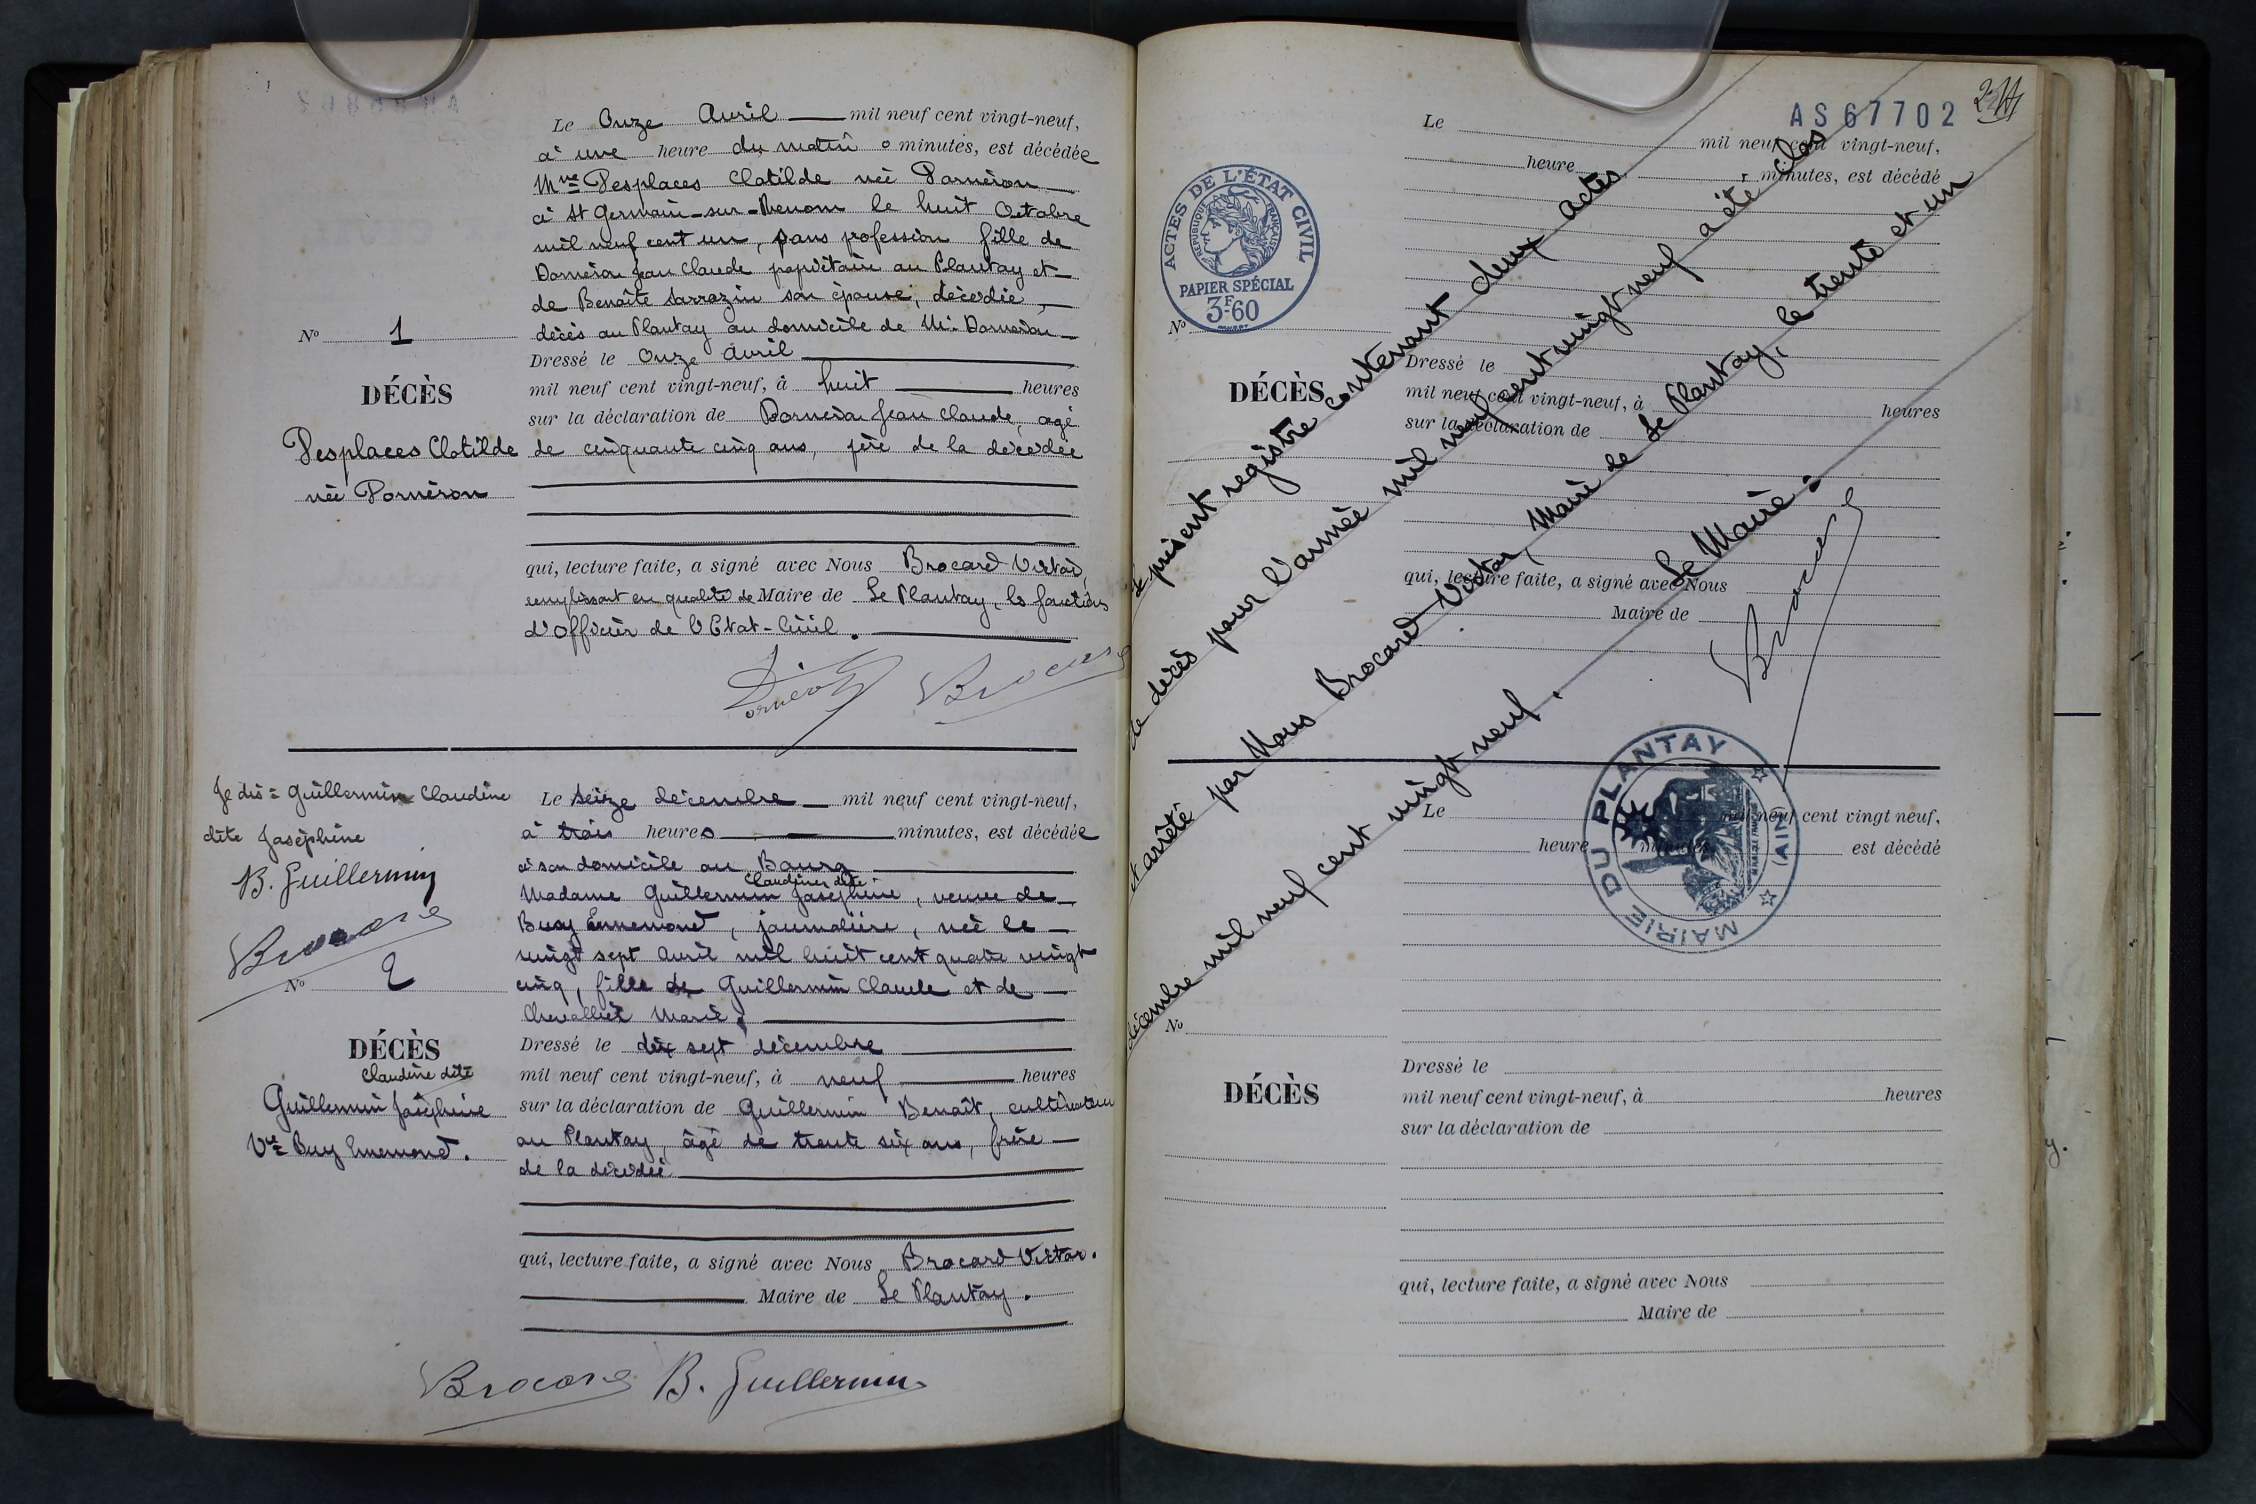 Le Onze Avril mil neuf cent vingt-neuf,
à une heure du matin 0 minutes, est décédée
Mme Desplaces Clotilde née Dornéron
à St Germain-sur-Renom le huit Octobre
mil neuf cent un, sans profession fille de
Dornéron Jean Claude propriétaire au Plantay et
de Benoîte Sarrazin son épouse, décédée,
décès au Plantay au domicile de Mr. Dornéron
Dressé le Onze Avril
mil neuf cent vingt-neuf, à huit heures
sur la déclaration de Dornéron Jean Claude, agé
de cinquante cinq ans, père de la décédée
qui, lecture faite, a signé avec Nous Brocard Victor,
remplissant en qualité de Maire de Le Plantay, les fonctions
d'officier de l'Etat-Civil.
Brocard
No 1
DÉCÈS
Desplaces Clotilde
née Dornéron
Je dis = Guillermin Claudine
dite Joséphine
B. Guillermin
Brocard
No 2
DÉCÈS
Claudine dite
Guillermin Joséphine
Vve Buy Ennemond.
Le Seize décembre mil neuf cent vingt-neuf,
à trois heures minutes, est décédée
à son domicile au Bourg
Claudine dite
Madame Guillermin Joséphine, veuve de
Buy Ennemond, journalière, née le
vingt sept Avril mil huit cent quatre vingt
cinq, fille de Guillermin Claude et de
Chevallier Marie.
Dressé le dix sept décembre
mil neuf cent vingt-neuf, à neuf heures
sur la déclaration de Guillermin Benoît, cultivateur
au Plantay, âgé de trente six ans, frère
de la décédée
qui, lecture faite, a signé avec Nous Brocard Victor.
Maire de Le Plantay.
Brocard B. Guillermin
AS67702
ACTES DE L'ÉTAT CIVIL
RÉPUBLIQUE FRANÇAISE
PAPIER SPÉCIAL
3F-60
Le mil neuf cent vingt-neuf,
heure minutes, est décédé
No
DÉCÈS
Dressé le
mil neuf cent vingt-neuf, à heures
sur la déclaration de
qui, lecture faite, a signé avec Nous
Maire de
Le présent registre contenant deux actes
de décès pour l'année mil neuf cent vingt neuf a été clos
et arrêté par Nous Brocard Victor, Maire de Le Plantay, le trente et un
décembre mil neuf cent vingt neuf.
Le Maire:
Brocard
MAIRIE DU PLANTAY
(AIN)
Le mil neuf cent vingt neuf,
heure minutes est décédé
No
DÉCÈS
Dressé le
mil neuf cent vingt-neuf, à heures
sur la déclaration de
qui, lecture faite, a signé avec Nous
Maire de